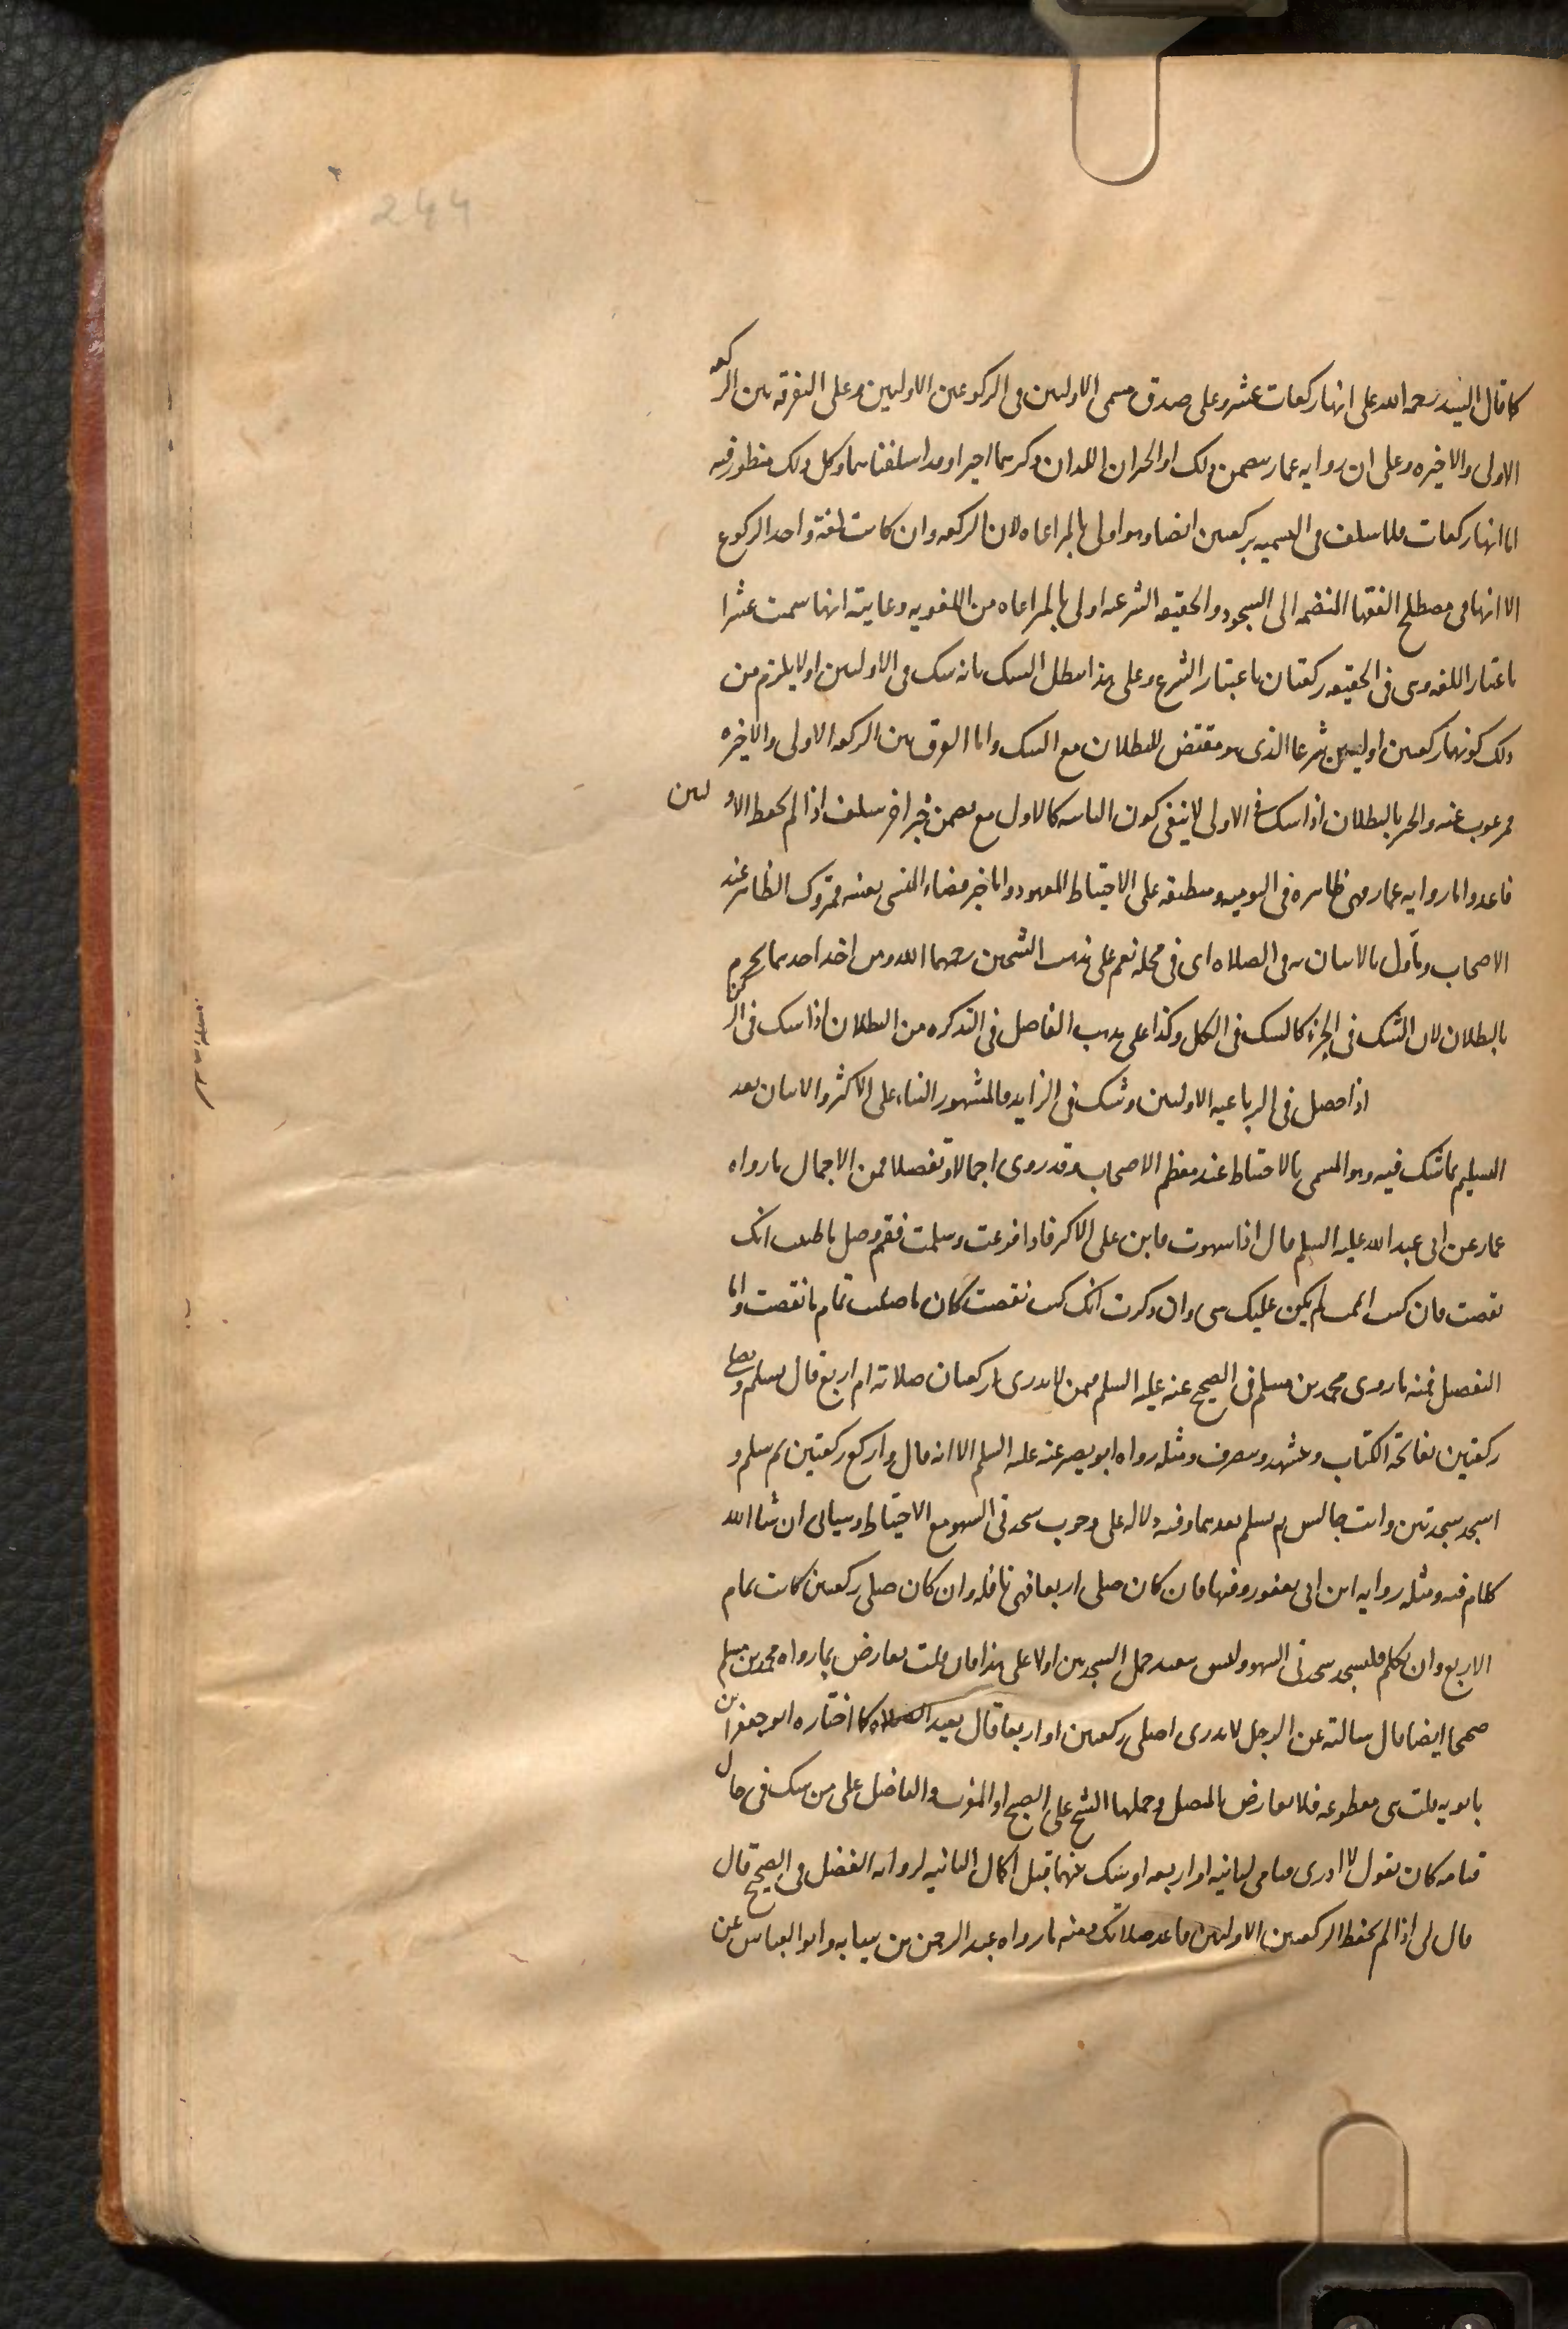 244
كما قال السيد رحمه الله على انها ركعات عشر وعلى صدق مسمى الاوليين فى الركوعين الاوليين وعلى التفرقه بين الركعه
الاولى والاخيره وعلى ان روايه عمار يتضمن ذلك او الخبران اللذان ذكرهما اخيرا وقد اسلفناهما وكل ذلك منظور فيه
اما انها ركعات فلما سلف فى التسميه بركعتين ايضا وهو اولى بالمراعاه لان الركعه وان كانت لغة واحد الركوع
الا انها فى مصطلح الفقها المنضمه الى السجود والحقيقه الشرعيه اولى بالمراعاه من اللغويه وغايته انها سميت عشرا
باعتبار اللغه وهى فى الحقيقه ركعتان باعتبار الشرع وعلى هذا يبطل الشك بانه شك فى الاوليين اولا يلزم من
ذلك كونهما ركعتين اوليين شرعا الذى هو مقتض للبطلان مع الشك واما الفرق بين الركعه الاولى والاخيره
فمرغوب عنه والخبر بالبطلان اذا شك فى الاولى لا ينفى كون الثانيه كالاول مع تضمن خبر اخر سلف اذا لم يحفظ الاوليين
فاعد واما روايه عمار فهى ظاهره فى اليوميه ومنطبقه على الاحتياط المعهود واما خبر قضاء المنسى بعينه فمتروك الظاهر عند
الاصحاب وتأول بالاتيان به فى الصلاه اى فى محله نعم على مذهب الشيخين رحمهما الله ومن اخذ اخذهما يجزم
بالبطلان لان الشك فى الجزء كالشك فى الكل وكذا على مذهب الفاضل فى التذكره من البطلان اذا شك فى الركن
اذا حصل فى الرباعيه الاوليين وشك فى الزايد فالمشهور البناء على الاكثر والاتيان بعد
التسليم بما شك فيه وهو المسمى بالاحتياط عند معظم الاصحاب وقد روى اجمالا وتفصيلا فمن الاجمال ما رواه
عمار عن ابى عبد الله عليه السلم قال اذا سهوت فابن على الاكثر فاذا فرغت وسلمت فقم وصل ما ظننت انك
نقصت فان كنت اتممت لم يكن عليك شى وان ذكرت انك كنت نقصت كان ما صليت تمام ما نقصت واما
التفصيل فمنه ما روى محمد بن مسلم فى الصحيح عنه عليه السلم فيمن لا يدرى اركعتان صلاته ام اربع قال يسلم ويصلى
ركعتين بفاتحة الكتاب ويتشهد وينصرف ومثله رواه ابو بصير عنه عليه السلم الا انه قال واركع ركعتين ثم سلم و
اسجد سجدتين وانت جالس ثم تسلم بعدهما وفيه دلاله على وجوب سجدتى السهو مع الاحتياط وسياتى ان شا الله
كلام فيه ومثله روايه ابن ابى يعفور وفيها فان كان صلى اربعا فهى نافله وان كان صلى ركعتين كانت تمام
الاربع وان تكلم فليسجد سجدتى السهو وليس ببعيد حمل السجدتين اولا على هذا فان قلت تعارض بما رواه محمد بن مسلم
صحيحا ايضا قال سالته عن الرجل لا يدرى اصلى ركعتين او اربعا قال يعيد الصلاه كما اختاره ابو جعفر ابن
بابويه قلت هى مقطوعه فلا تعارض بالمتصل وحملها الشيخ على الصبح او المغرب والفاضل على من شك فى حال
قيامه كان يقول لا ادرى قيامى لثانيه او لرابعه او شك فيهما قبل اكمال الثانيه لروايه الفضل فى الصحيح قال
قال لى اذا لم تحفظ الركعتين الاوليين فاعد صلاتك ومنه ما رواه عبد الرحمن بن سيابه وابو العباس عن